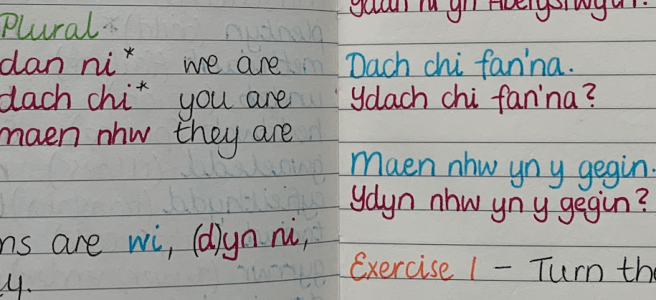 Plural
dan ni* we are
dach chi* you are
maen nhw they are
ns are wi, (d)yn ni,
y.
Dach chi fan'na.
Ydach chi fan'na?
Maen nhw yn y gegin.
Ydyn nhw yn y gegin?
Exercise 1 - Turn th